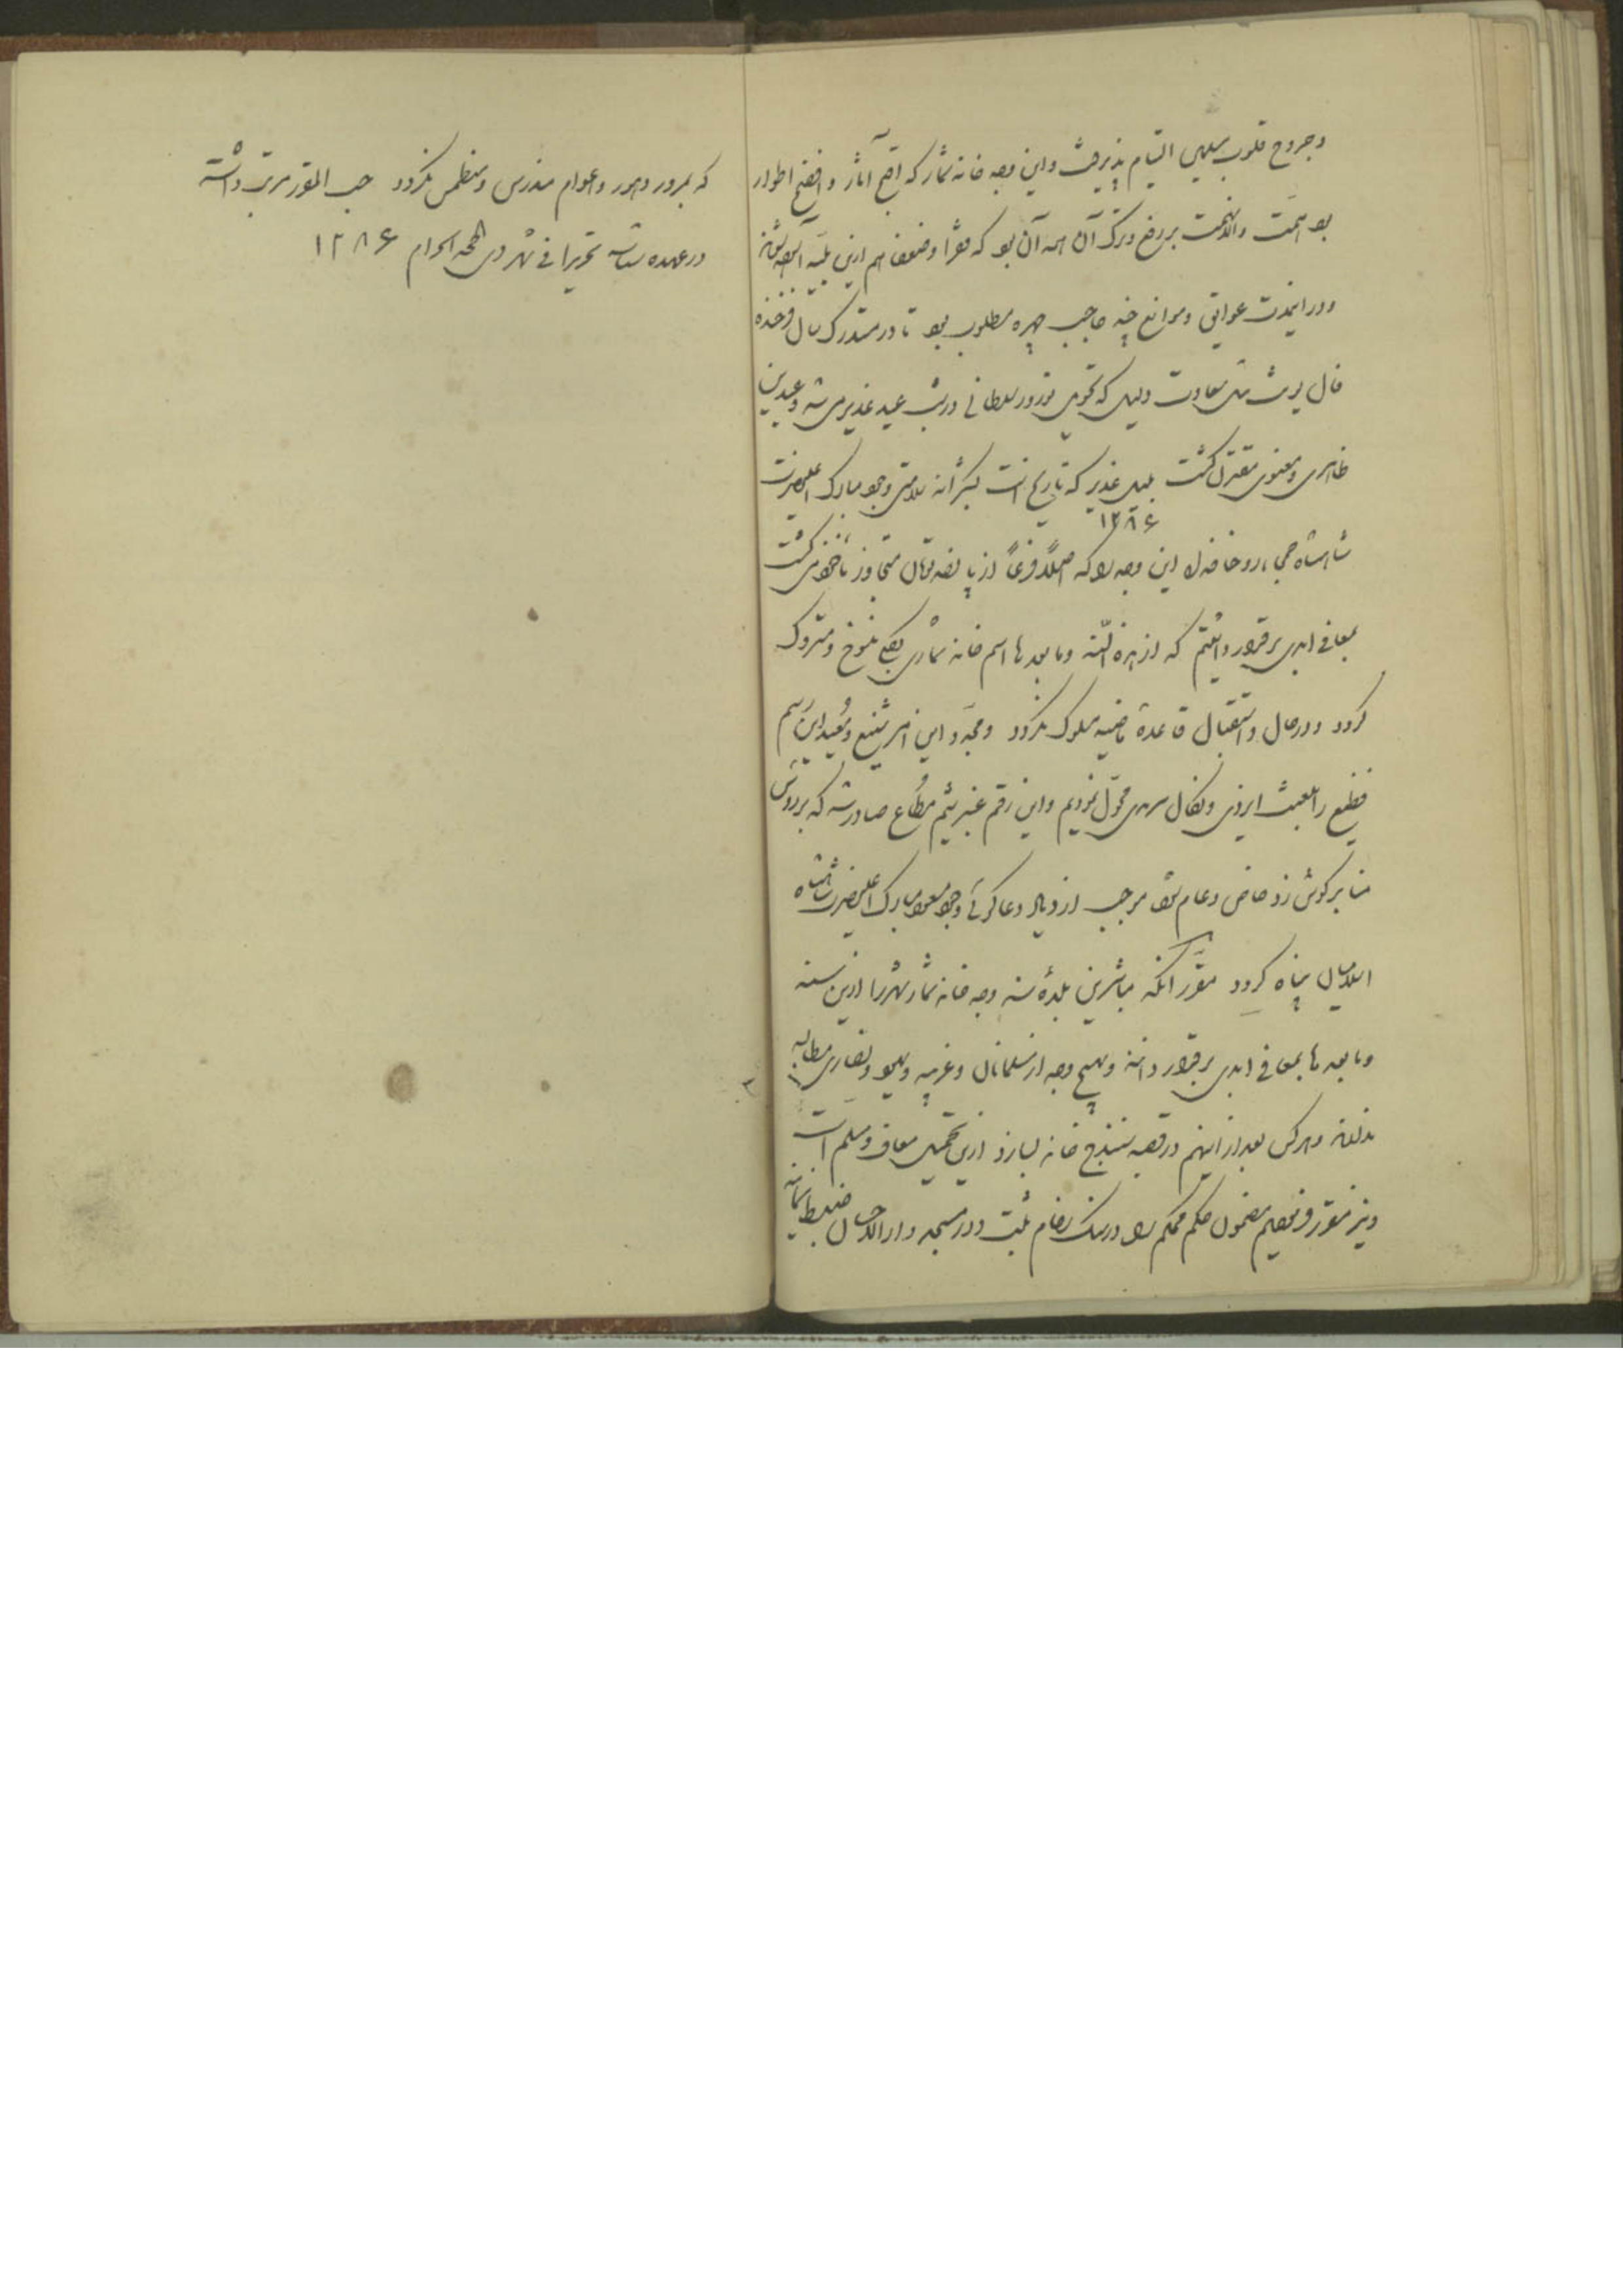 و جروح قلوب سلیمی التیام پذیرفت و این وجه خانه شمار که اقبح آثار و افضح اطوار
بود همت والانهمت بر رفع و ترک آن همه آن بود که فقرا و ضعفا هم ازین بلیه آسوده شوند
و در اینمدت عوایق و موانع چند حاجب چهره مطلوب بود تا در متدرک سال فرخنده
فال یونت ئیل سعادت دلیل که تحویل نوروز سلطانی در شب عید غدیر می شد و عیدین
ظاهری و معنوی مقترن گشت بلیل غدیر که تاریخ است بشکرانه سلامتی وجود مبارک اعلیحضرت
۱۲۸۶
شاهنشاه جمجاه روحنا فداه این وجه را که اصلاً و فرعاً از پانصد تومان متجاوز مأخوذ می گشت
بمعافی ابدی برقرار داشتیم که از هذه السنه و ما بعدها اسم خانه شماری بکلی منسوخ و متروک
گردد و در حال و استقبال قاعده ماضیه سلوک نگردد و مجدد این امر شنیع و معید این رسم
فظیع را بلعنت ایزدی و نکال سرمدی محول نمودیم و این رقم عنبر شیم مطاع صادر شد که بر رؤس
منابر گوش زد خاص و عام شود موجب ازدیاد دعاگوئی وجود مسعود مبارک اعلیحضرت شاهنشاه
اسلامیان پناه گردد مقرر آنکه مباشرین بلده سنه وجه خانه شمار شهر را ازین سنه
و ما بعدها بمعافی ابدی برقرار دانند و بهیچ وجه از مسلمانان و غریبه و یهود و نصاری مطالبه
ندارند و هر کس بعد از اینهم در قصبه سنندج خانه بسازد ازین تحمیل معاف و مسلم است
و نیز مقرر فرمودیم مضمون حکم محکم را در سنگ رخام ثبت و در مسجد دارالاحسان ضبط نمایند
که بمرور دهور و اعوام مندرس و منطمس نگردد حسب المقرر مرتب داشته
در عهده شناسند تحریرا فی شهر ذی الحجه الحرام ۱۲۸۶